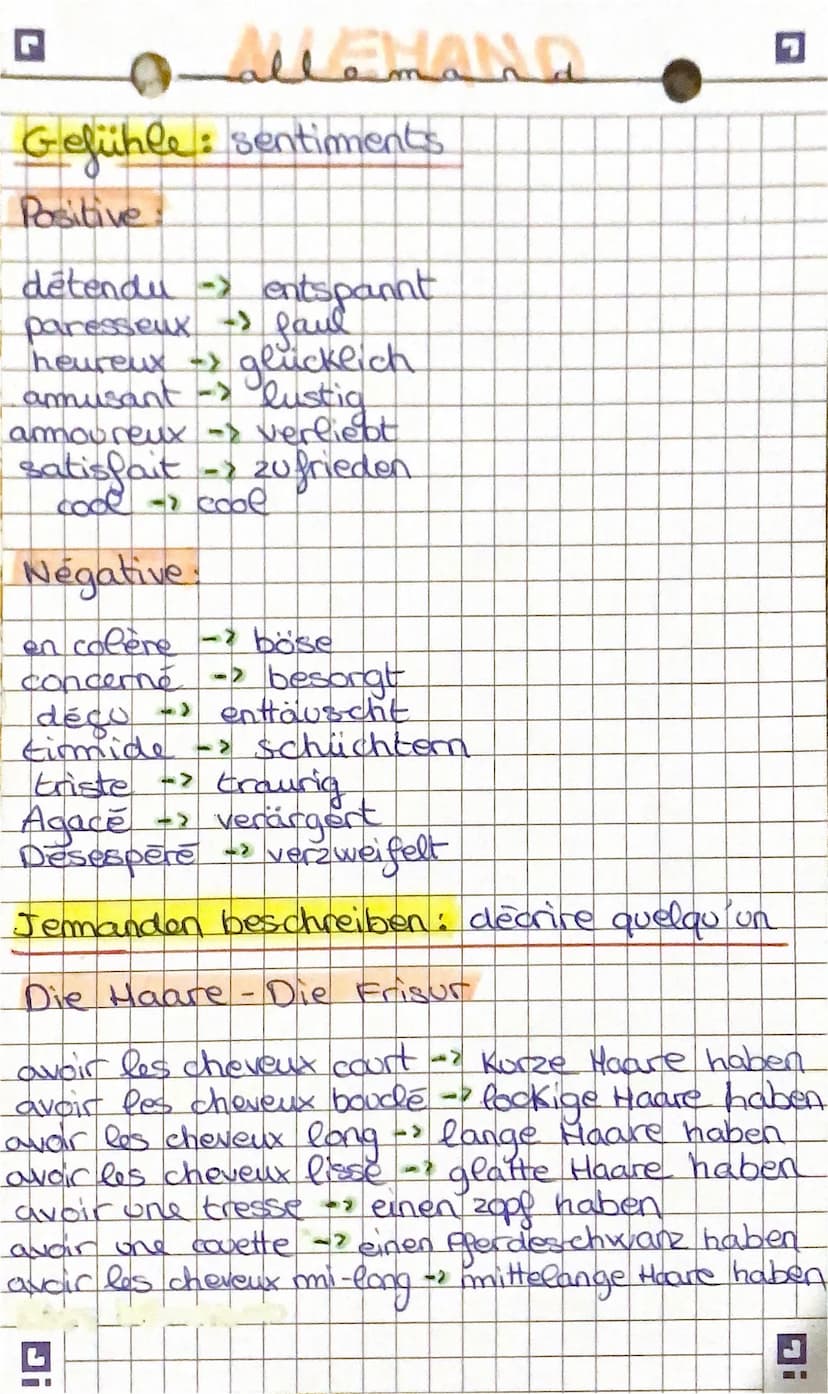 ALLEMAND
allemand
Gefühle: sentiments
Positive:
détendu -> entspannt
paresseux -> faul
heureux -> glücklich
amusant -> lustig
amoureux -> verliebt
satisfait -> zufrieden
cool -> cool
Négative:
en colère -> böse
concerné -> besorgt
déçu -> enttäuscht
timide -> schüchtern
triste -> traurig
Agacé -> verärgert
Désespéré -> verzweifelt
Jemanden beschreiben: décrire quelqu'un
Die Haare - Die Frisur
avoir les cheveux court -> Kurze Haare haben
avoir les cheveux bouclé -> lockige Haare haben
avoir les cheveux long -> lange Haare haben
avoir les cheveux lisse -> glatte Haare haben
avoir une tresse -> einen zopf haben
avoir une couette -> einen Pferdeschwanz haben
avoir les cheveux mi-long -> mittelange Haare haben